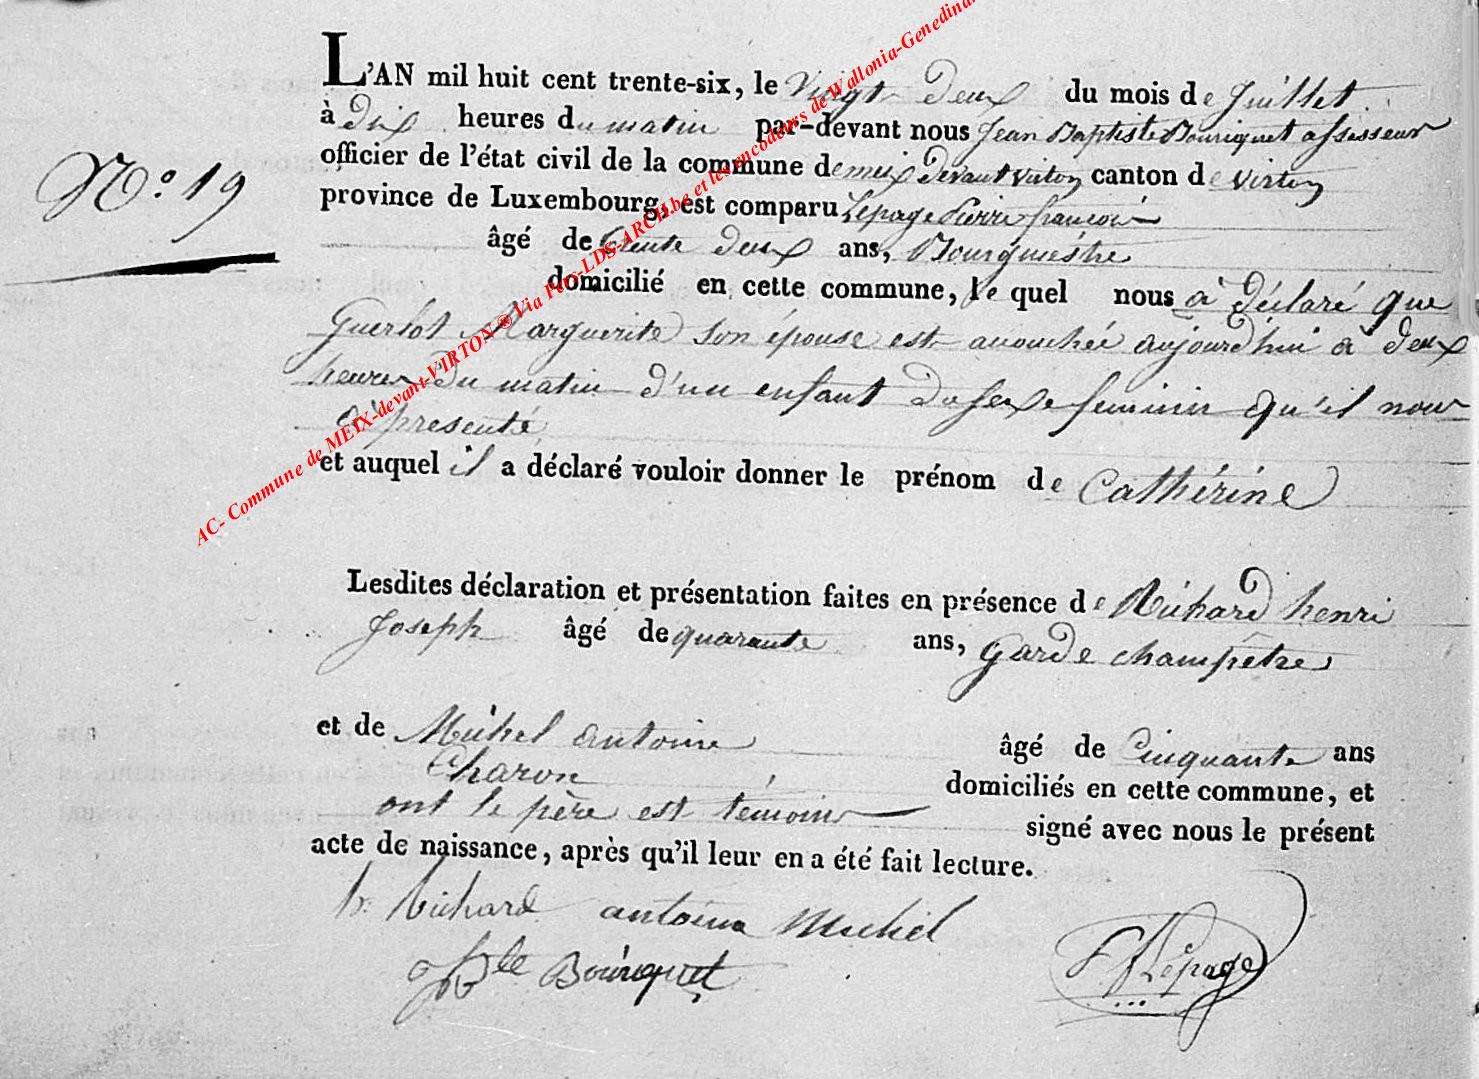 L'AN mil huit cent trente-six, le Vingt Deux du mois de Juillet
à Dix heures du matin par-devant nous Jean Baptiste Bouriquet assesseur
officier de l'état civil de la commune de meix Devant virton canton de virton
N.º 19
province de Luxembourg, est comparu Lepage Pierre françois
âgé de trente Deux ans, Bourgmestre
domicilié en cette commune, le quel nous a Déclaré que
Guerlot Marguerite son épouse est acouchée aujourd'hui à deux
heures Du matin D'un enfant Du sexe feminin qu'il nous
a présenté
et auquel il a déclaré vouloir donner le prénom de Cathérine
Lesdites déclaration et présentation faites en présence de Richard henri
Joseph âgé de quarante ans, Garde champêtre
et de Michel antoine âgé de Cinquante ans
Charon domiciliés en cette commune, et
ont le père est témoins signé avec nous le présent
acte de naissance, après qu'il leur en a été fait lecture.
h. Richard antoine Michel
JBte Bouriquet F Lepage
AC- Commune de MEIX-devant-VIRTON ® Via Pvo-LDS-ARCH.be et les encodeurs de Wallonia-Genedina